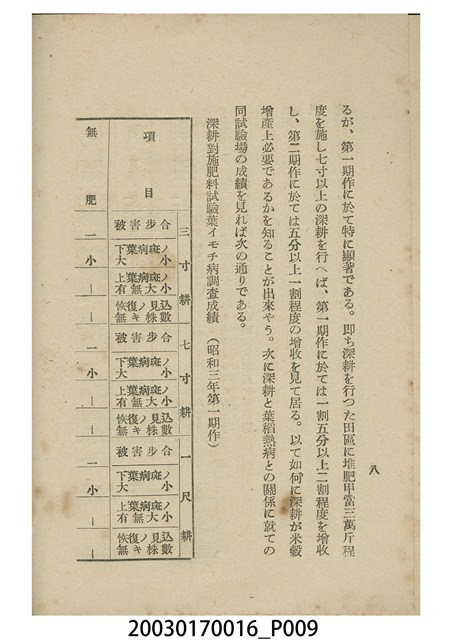 八
るが、第一期作に於て特に顯著である。即ち深耕を行つた田區に堆肥甲當三萬斤程
度を施し七寸以上の深耕を行へば、第一期作に於ては一割五分以上二割程度を增收
し、第二期作に於ては五分以上一割程度の增收を見て居る。以て如何に深耕が米穀
增產上必要であるかを知ることが出來やう。次に深耕と葉稻熱病との關係に就ての
同試驗場の成績を見れば次の通りである。
深耕對施肥料試驗葉イモチ病調查成績 (昭和三年第一期作)
項目
三寸耕
被害步合
下葉病斑ノ大小
上葉病斑ノ有無大小
恢復ノ見込無キ株數
七寸耕
被害步合
下葉病斑ノ大小
上葉病斑ノ有無大小
恢復ノ見込無キ株數
一尺耕
被害步合
下葉病斑ノ大小
上葉病斑ノ有無大小
恢復ノ見込無キ株數
無肥
二
小
－
－
一
小
－
－
二
小
－
－
20030170016_P009